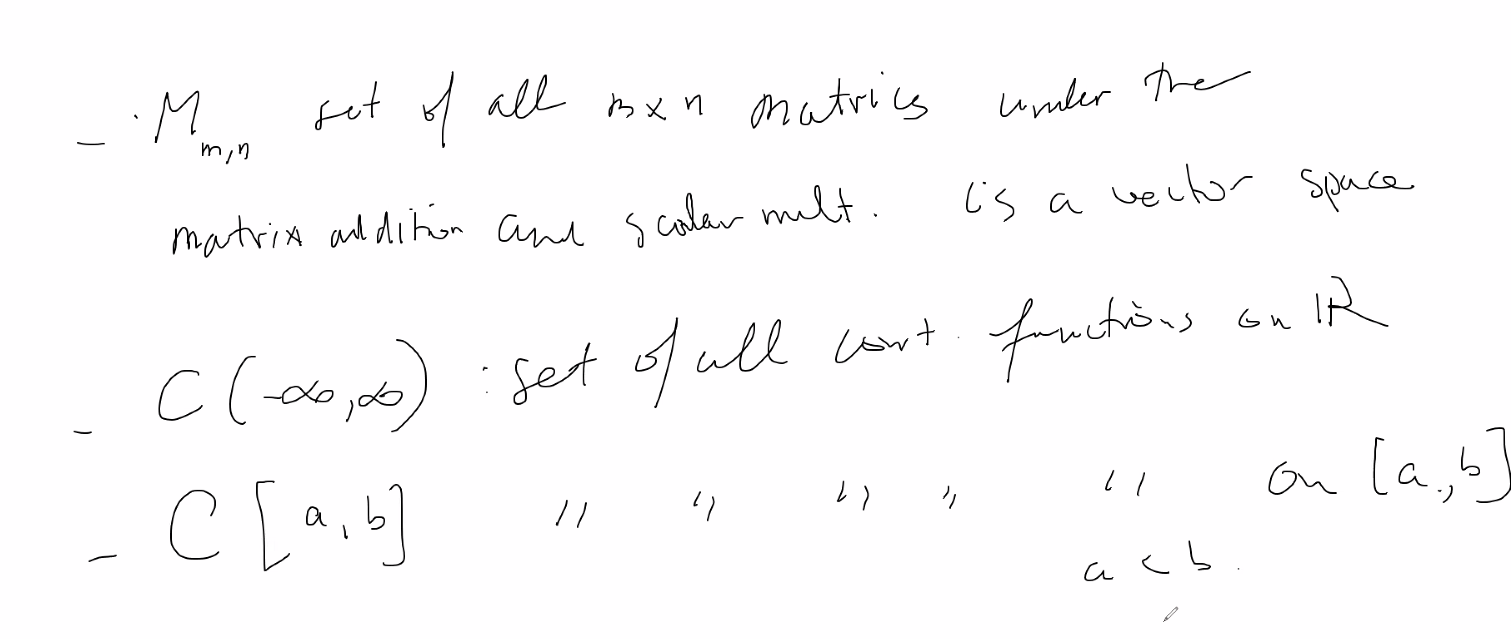 - M_{m,n} set of all m×n matrics under the
matrix addition and scalar mult. is a vector space
- C(-∞,∞) : set of all cont. functions on ℝ
- C[a,b] " " " " " on [a,b]
a < b.